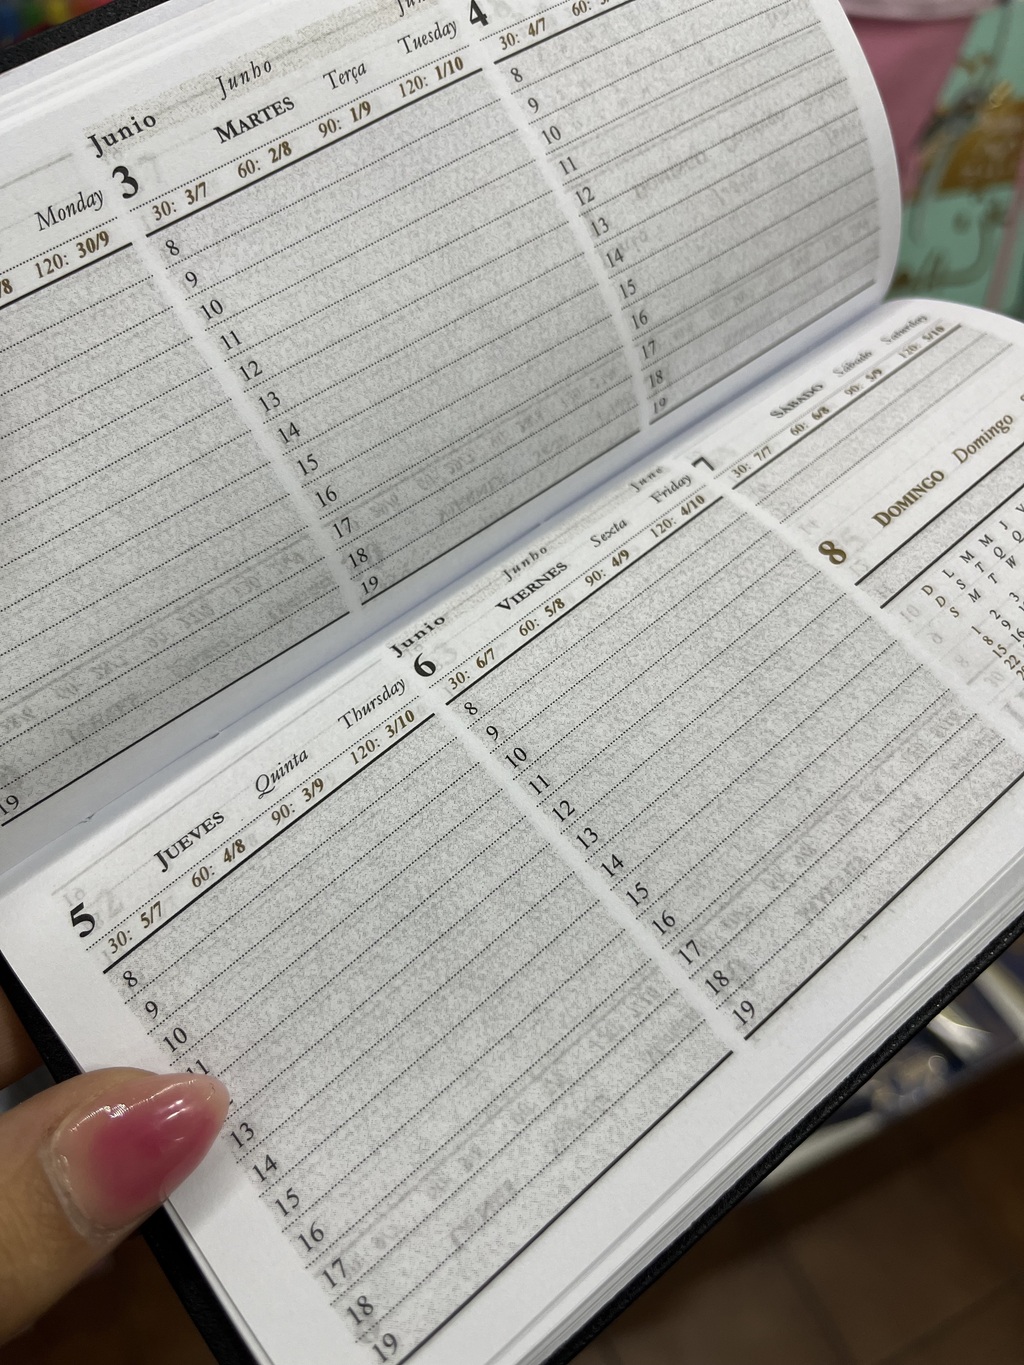 Monday
/8 120: 30/9
19
Junio Junho
3 MARTES Terça Tuesday
30: 3/7 60: 2/8 90: 1/9 120: 1/10
8
9
10
11
12
13
14
15
16
17
18
19
4
30: 4/7 60:
8
9
10
11
12
13
14
15
16
17
18
19
5 JUEVES Quinta Thursday
30: 5/7 60: 4/8 90: 3/9 120: 3/10
8
9
10
11
13
14
15
16
17
18
19
Junio Junho June
6 VIERNES Sexta Friday
30: 6/7 60: 5/8 90: 4/9 120: 4/10
8
9
10
11
12
13
14
15
16
17
18
19
7 SÁBADO Sábado Saturday
30: 7/7 60: 6/8 90: 5/9 120: 5/10
8 DOMINGO Domingo
D L M M J V
D S T Q Q
S M T W
1 2 3
8 9 1
15 16
22